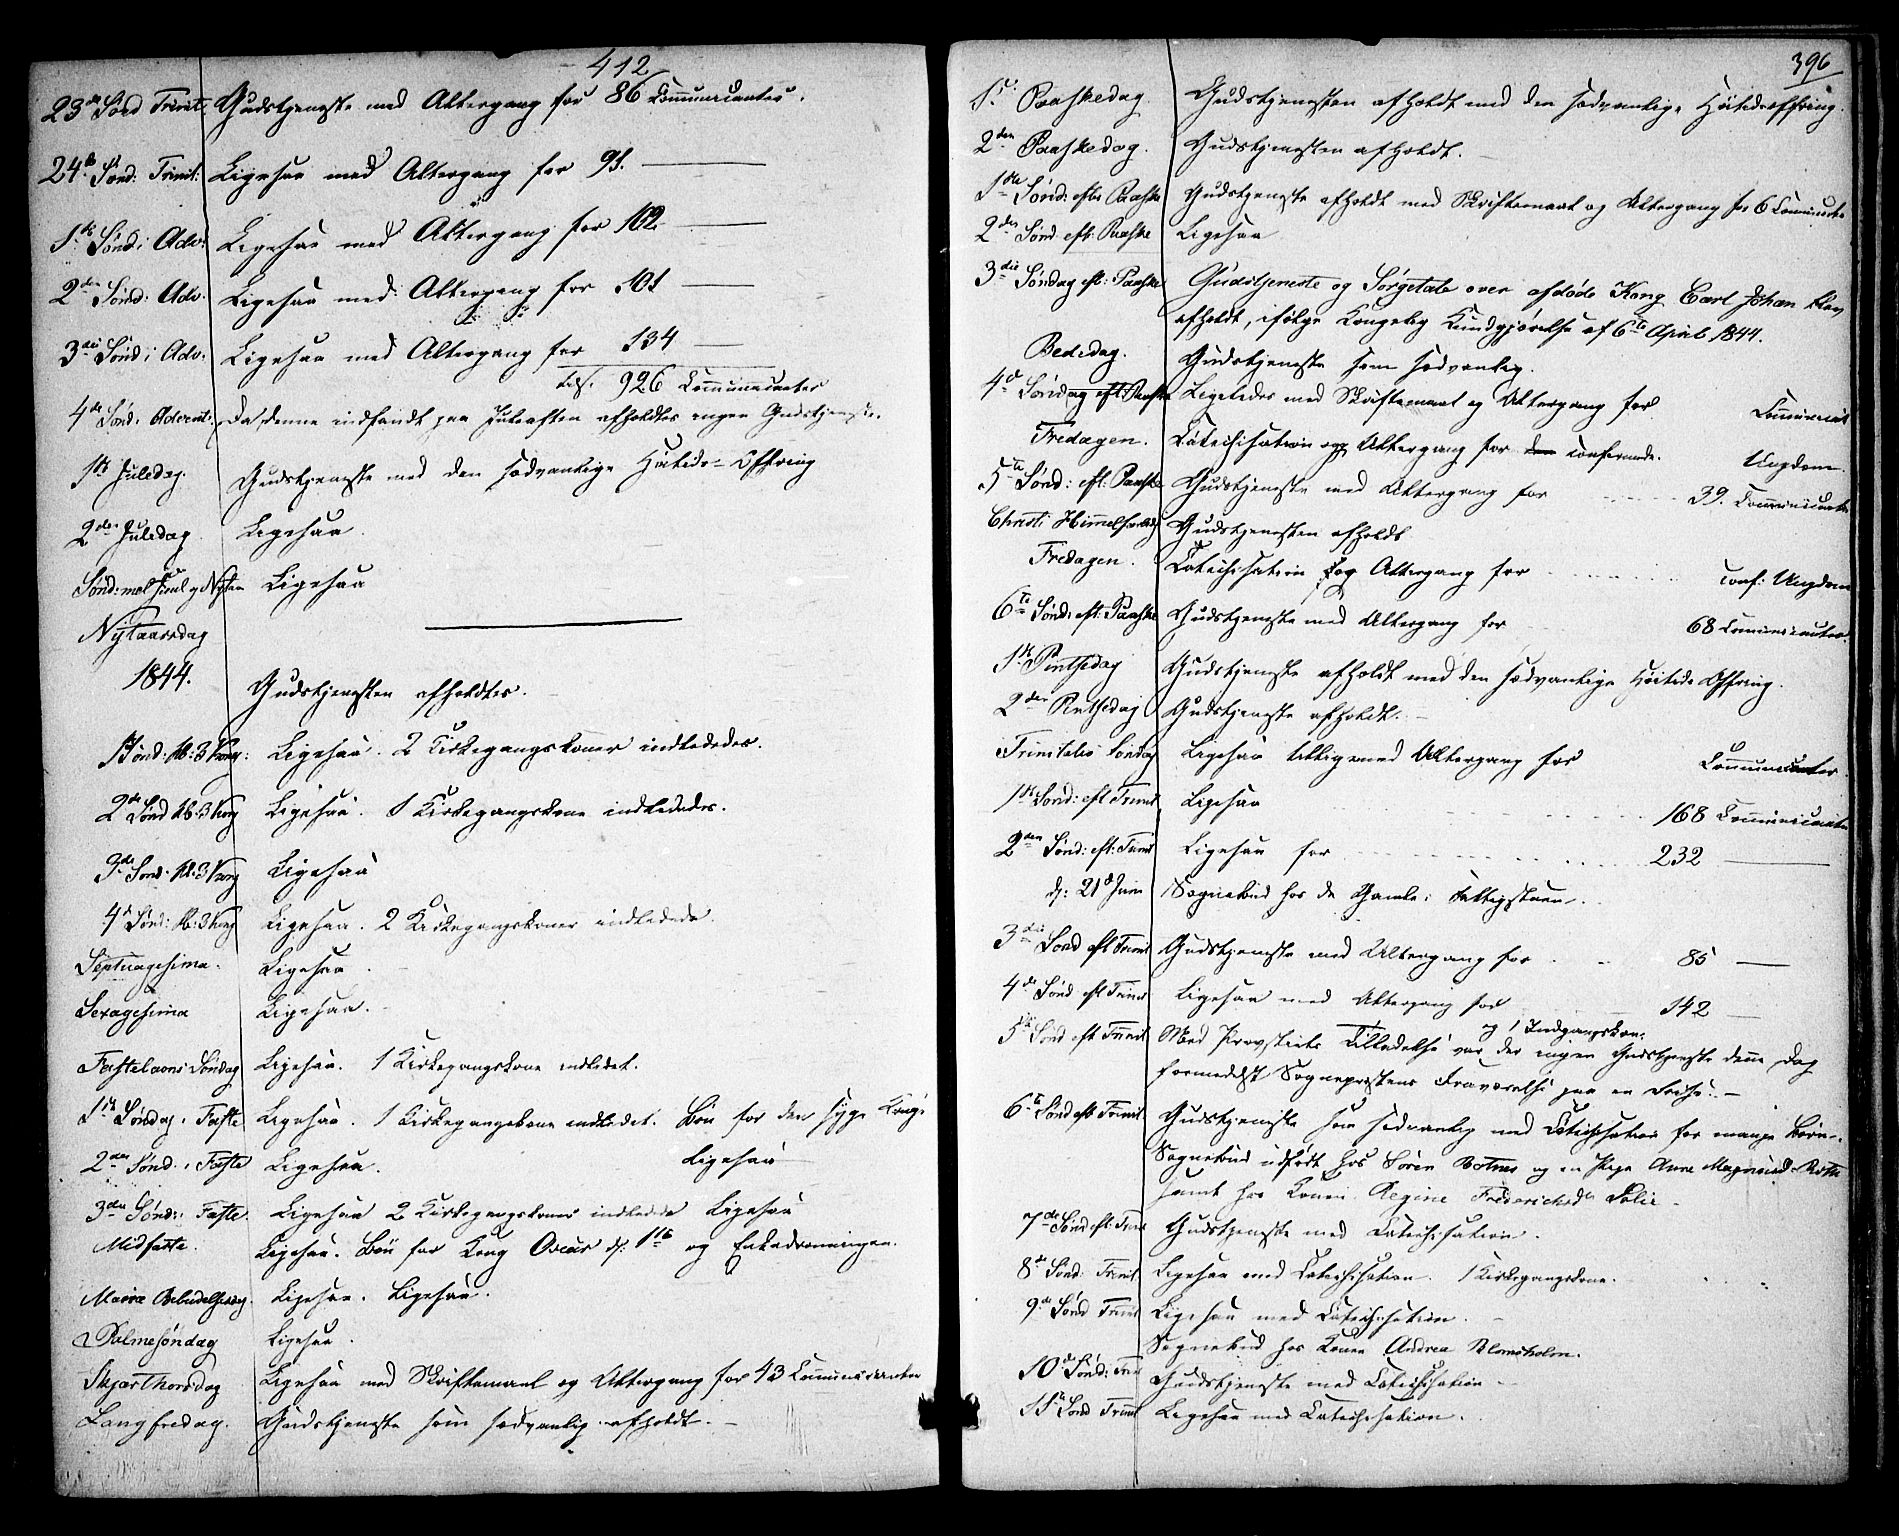 412
23de Sønd Trinit. Gudstjeneste med Altergang for 86 Communicanter.
24de Sønd: Trinit: Ligesaa med Altergang for 91. —
1ste Sønd: Adv: Ligesaa med Altergang for 102. —
2den Sønd: Adv. Ligesaa med Altergang for 101 —
3die Sønd: Adv. Ligesaa med Altergang for 134 —
926 Communicanter
4de Sønd: Advent: Da denne indfandt paa Juleaften afholdtes ingen Gudstjeneste.
1ste Juledag. Gudstjeneste med den sædvanlige Høitids-Offring
2den Juledag Ligesaa
Sønd: mel Juul og Nytaar Ligesaa
Nytaarsdag
1844. Gudstjenesten afholdtes.
1 Sønd: H: 3 Kong: Ligesaa. 2 Kirkegangskoner indlededes.
2de Sønd H: 3 Kong Ligesaa. 1 Kirkegangskone indlededes.
3de Sønd: H: 3 Kong Ligesaa
4d Sønd: H: 3 Kong Ligesaa. 2 Kirkegangskoner indledede.
Septuagesima. Ligesaa.
Sexagesima Ligesaa.
Fastelavns Søndag Ligesaa. 1 Kirkegangskone indledet.
1ste Søndag i Faste Ligesaa. 1 Kirkegangskone indledet. Bøn for den syge Konge
2den Sønd: i Faste Ligesaa. Ligesaa
3die Sønd: i Faste Ligesaa 2 Kirkegangskoner indledede Ligesaa
Midfaste. Ligesaa. Bøn for Kong Oscar d: 1ste og Enkedronningen.
Mariæ Bebudelsesdag. Ligesaa. Ligesaa.
Palmesøndag Ligesaa.
Skjærthorsdag Ligesaa med Skriftemaal og Altergang for 43 Communicanter
Langfredag. Gudstjeneste som sædvanlig afholdt. —
396
1ste Paaskedag. Gudstjenesten afholdt med den sædvanlige Høitidsoffring.
2den Paaskedag. Gudstjenesten afholdt.
1ste Sønd: efter Paaske Gudstjeneste afholdt med Skriftemaal og Altergang for 6 Communicanter
2den Sønd eft: Paaske Ligesaa
3die Søndag eft: Paaske Gudstjeneste og Sørgetale over afdøde Kong Carl Johan blev
afholdt, ifølge Kongelig Kundgjørelse af 6te April 1844.
Bededag. Gudstjeneste som sædvanlig.
4de Søndag eft: Paaske Ligeledes med Skriftemaal og Altergang for Communicant
Fredagen. Catechisation og Altergang for den confirmede. Ungdom.
5te Sønd: eft: Paaske Gudstjeneste med Altergang for 39. Communicanter
Christi Himmelfartsdag Gudstjenesten afholdt
Fredagen. Catechisation og Altergang for conf: Ungdom
6te Sønd: eft: Paaske Gudstjeneste med Altergang for 68 Communicanter.
1ste Pintsedag Gudstjeneste afholdt med den sædvanlige Høitids Offring.
2den Pintsedag Gudstjeneste afholdt.
Trinitatis Søndag Ligesaa tilligemed Altergang for Communicanter.
1ste Sønd: eft Trinit. Ligesaa 168 Communicanter
2den Sønd: eft: Trinit Ligesaa for 232 —
d: 21d Juni Sognebud hos de Gamle i Fattigstuen.
3die Sønd eft Trinit Gudstjeneste med Altergang for 85 —
4de Sønd eft Trinit Ligesaa med Altergang for 142 —
og 1 Indgangskone.
5te Sønd eft Trinit Med Provstiets Tilladelse var der ingen Gudstjeneste denne Dag
formedelst Sognepræstens Fraværelse paa en Reise. —
6te Sønd eft Trinit Gudstjeneste som sædvanlig med Catechisation for mange Børn.
Sognebud udført hos Søren Botner og en Pige Anne
samt hos Konen Regine Frederichsd: Lolie
7de Sønd eft: Trinit Gudstjeneste med Catechisation.
8de Sønd: Trinit. Ligesaa med Catechisation. 1 Kirkegangskone.
9de Sønd Trinit Ligesaa med Catechisation.
Sognebud hos Konen Andrea Blomsholm.
10de Sønd: Trinit Gudstjeneste med Catechisation —
11te Sønd Trinit Ligesaa med Catechisation.